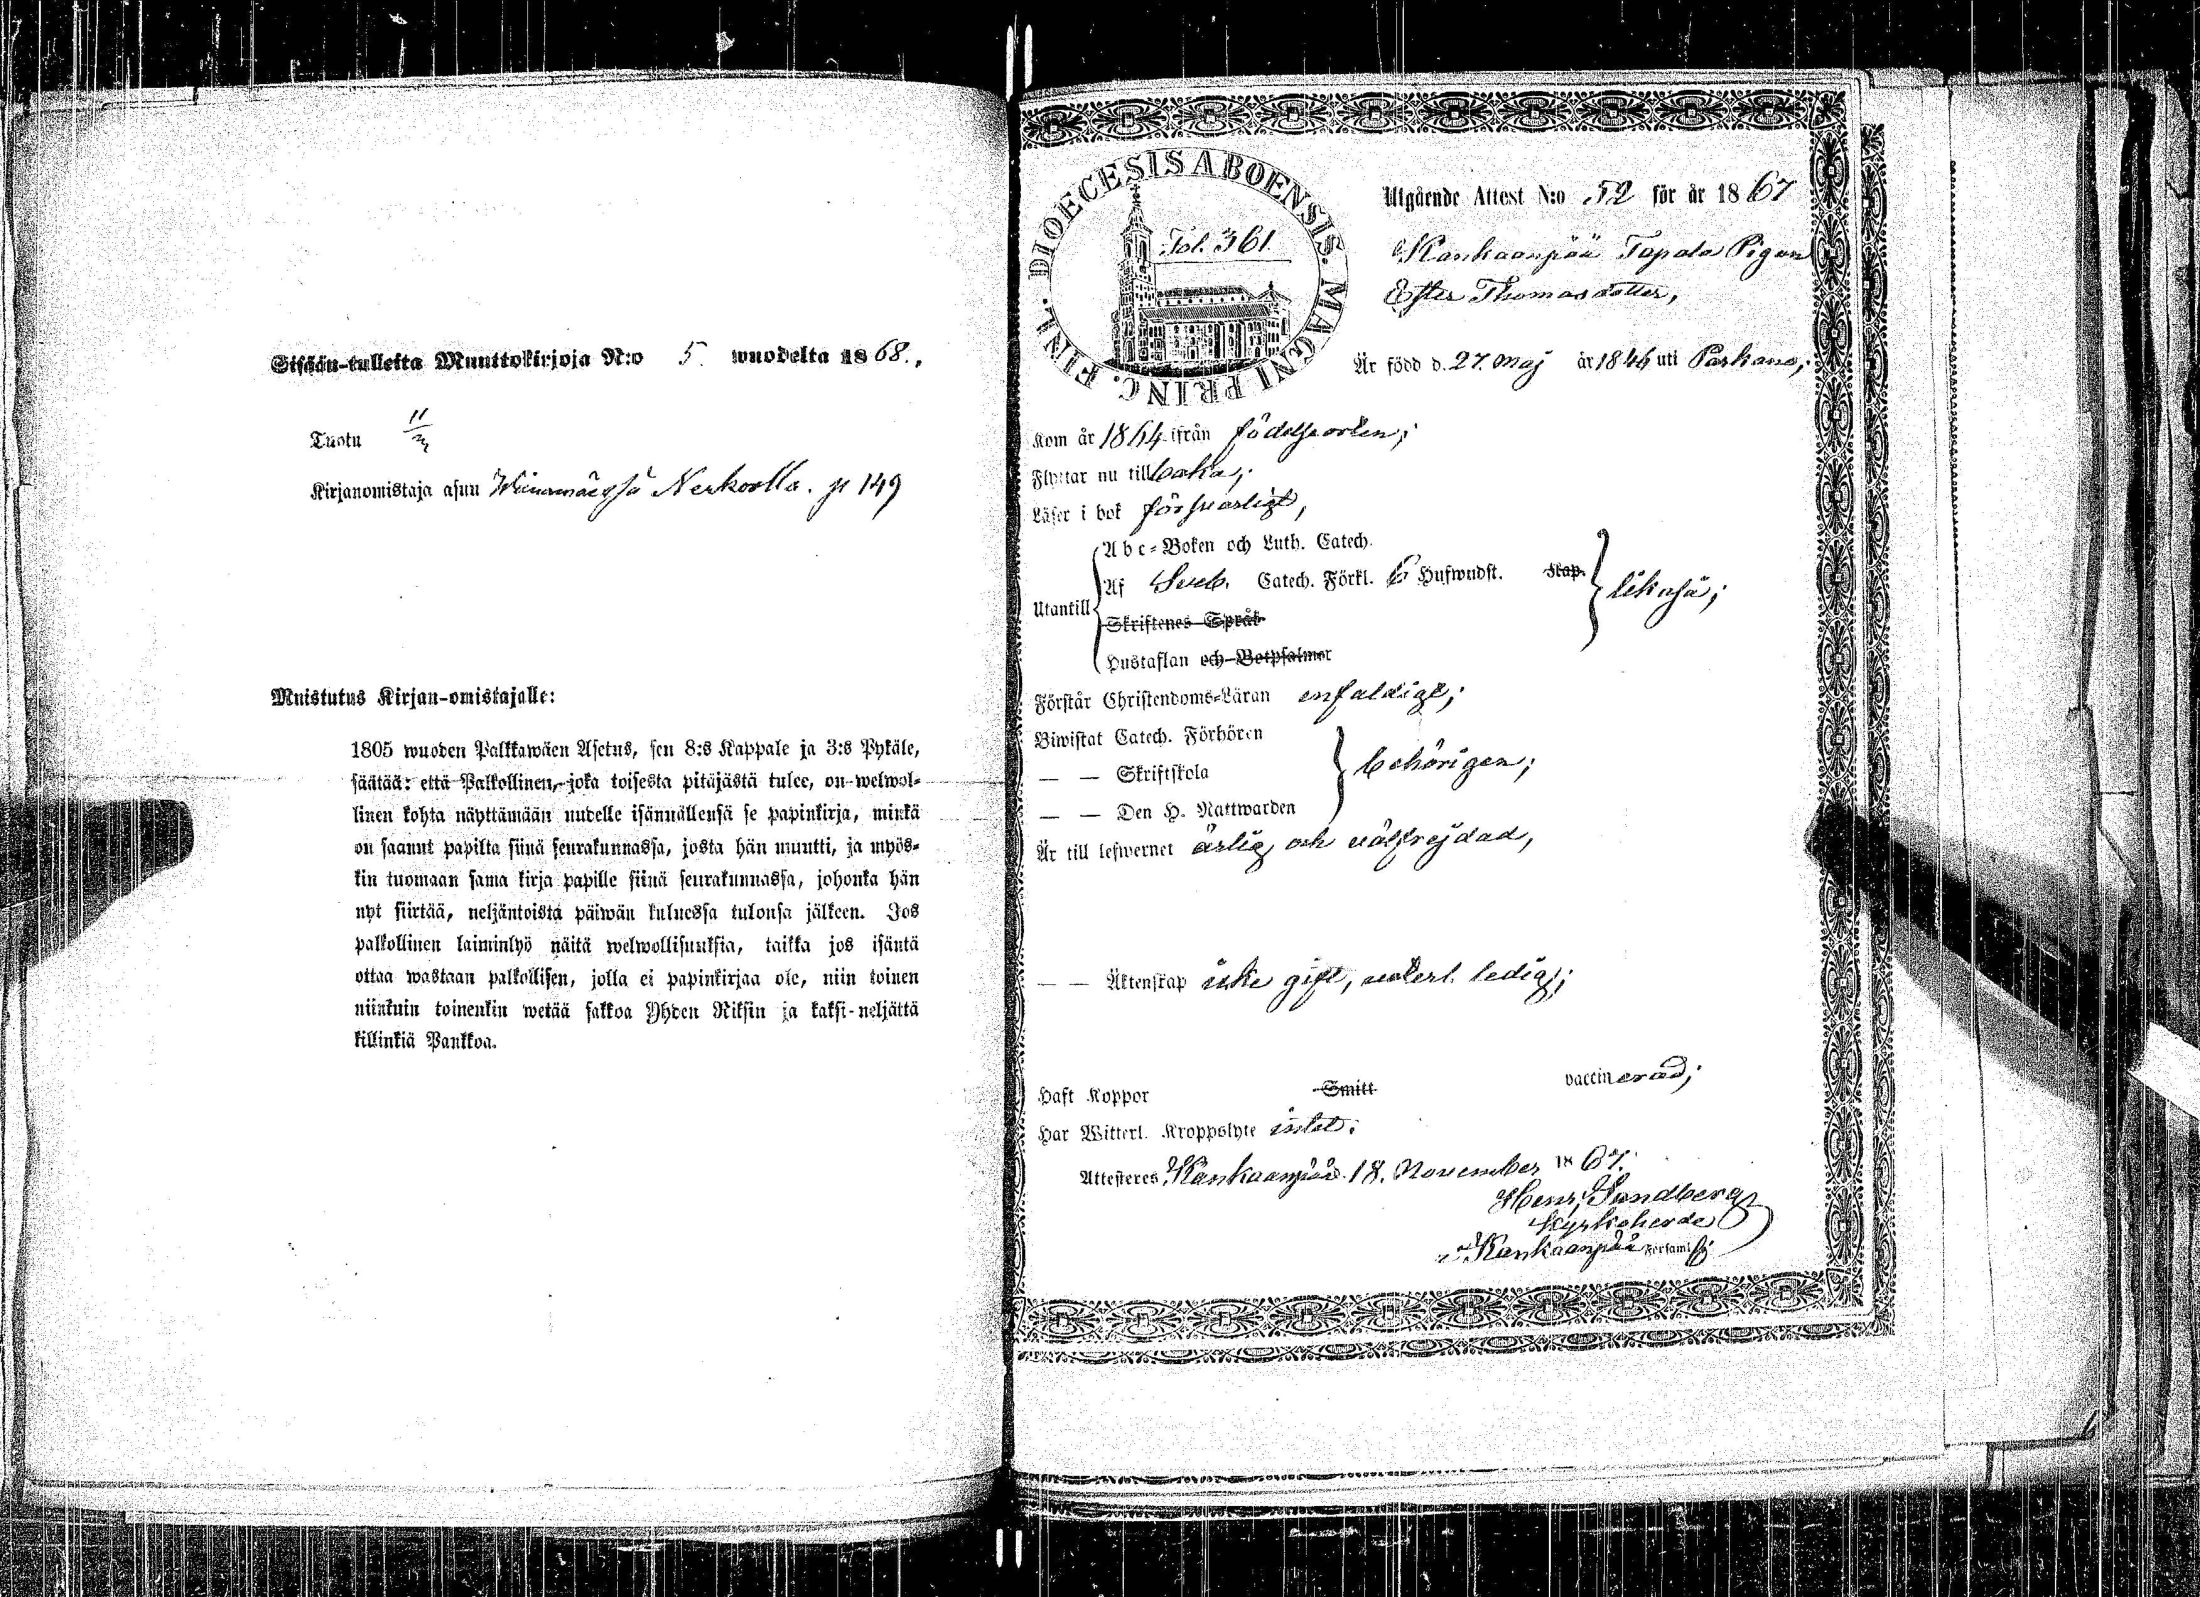 Sisään-tulleita Muuttokirjoja N:o 5. wuodelta 1868.,
Tuotu 11/3
Kirjanomistaja asuu Nerkoolla. p 149
Muistutus Kirjan-omistajalle:
1805 wuoden Palkkawäen Asetus, sen 8:s Kappale ja 3:s Pykäle,
säätää: että Palkollinen, joka toisesta pitäjästä tulee, on welwol-
linen kohta näyttämään uudelle isännällensä se papinkirja, minkä
on saanut papilta siinä seurakunnassa, josta hän muutti, ja myös-
kin tuomaan sama kirja papille siinä seurakunnassa, johonka hän
nyt siirtää, neljäntoista päiwän kuluessa tulonsa jälkeen. Jos
palkollinen laiminlyö näitä welwollisuuksia, taikka jos isäntä
ottaa wastaan palkollisen, jolla ei papinkirjaa ole, niin toinen
niinkuin toinenkin wetää sakkoa Yhden Riksin ja kaksi-neljättä
killinkiä Pankkoa.
DIOECESIS ABOENSIS. MAGNI PRINC. FINL.
Fol. 361
Utgående Attest N:o 52 för år 1867
Kankaanpää Tapala Pigan
Ester Thomasdotter,
Är född d. 27. Maj år 1846 uti Parkano;
Kom år 1864 ifrån födelseorten;
Flyttar nu tillbaka;
Läser i bok försvarligt,
Utantill
Abc-Boken och Luth. Catech.
Af Sveb. Catech. Förkl. 6 Hufwudst. Kap.
Skriftenes Språk
Hustaflan och Botpsalmer
likaså;
Förstår Christendoms-Läran enfaldigt;
Biwistat Catech. Förhören
— — Skriftskola
— — Den H. Nattwarden
behörigen;
Är till lefwernet ärlig och välfrejdad,
— — Äktenskap icke gift, ledig;
Haft Koppor Smitt vaccinerad;
Har Witterl. Kroppslyte intet.
Attesteres Kankaanpää 18. November 1867.
Henr. Sundberg
Kyrkoherde
i Kankaanpää Församl.